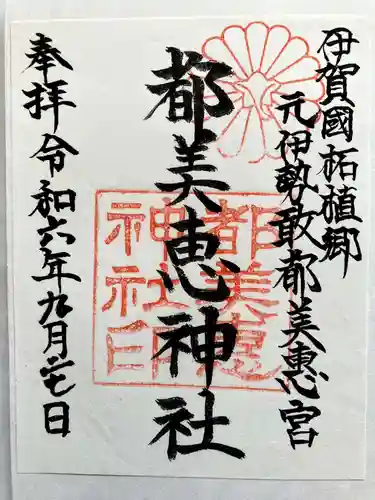 伊賀國柘植郷
元伊勢敢都美惠宮
都美恵神社
奉拝令和六年九月廿七日
都美恵
神社印